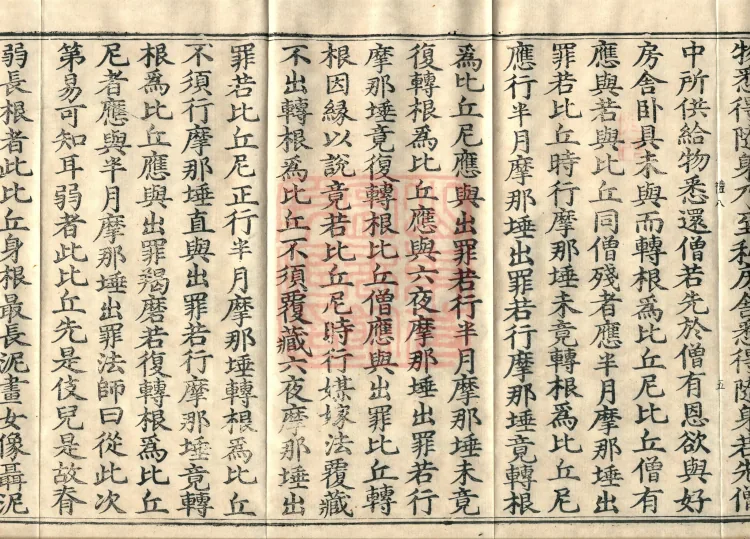 物悉得隨身不至私房舍悉得隨身若先僧
中所供給物悉還僧若先於僧有恩欲與好
房舍卧具未與而轉根為比丘尼比丘僧有
應與若與比丘同僧殘者應半月摩那埵出
罪若比丘時行摩那埵未竟轉根為比丘尼
應行半月摩那埵出罪若行摩那埵竟轉根
為比丘尼應與出罪若行半月摩那埵未竟
復轉根為比丘應與六夜摩那埵出罪若行
摩那埵竟復轉根比丘僧應與出罪比丘轉
根因緣以說竟若比丘尼時行媒嫁法覆藏
不出轉根為比丘不須覆藏六夜摩那埵出
罪若比丘尼正行半月摩那埵轉根為比丘
不須行摩那埵直與出罪若行摩那埵竟轉
根為比丘應與出罪羯磨若復轉根為比丘
尼者應與半月摩那埵出罪法師曰從此次
第易可知耳弱者此比丘先是伎兒是故脊
弱長根者此比丘身根最長泥畫女像聶泥